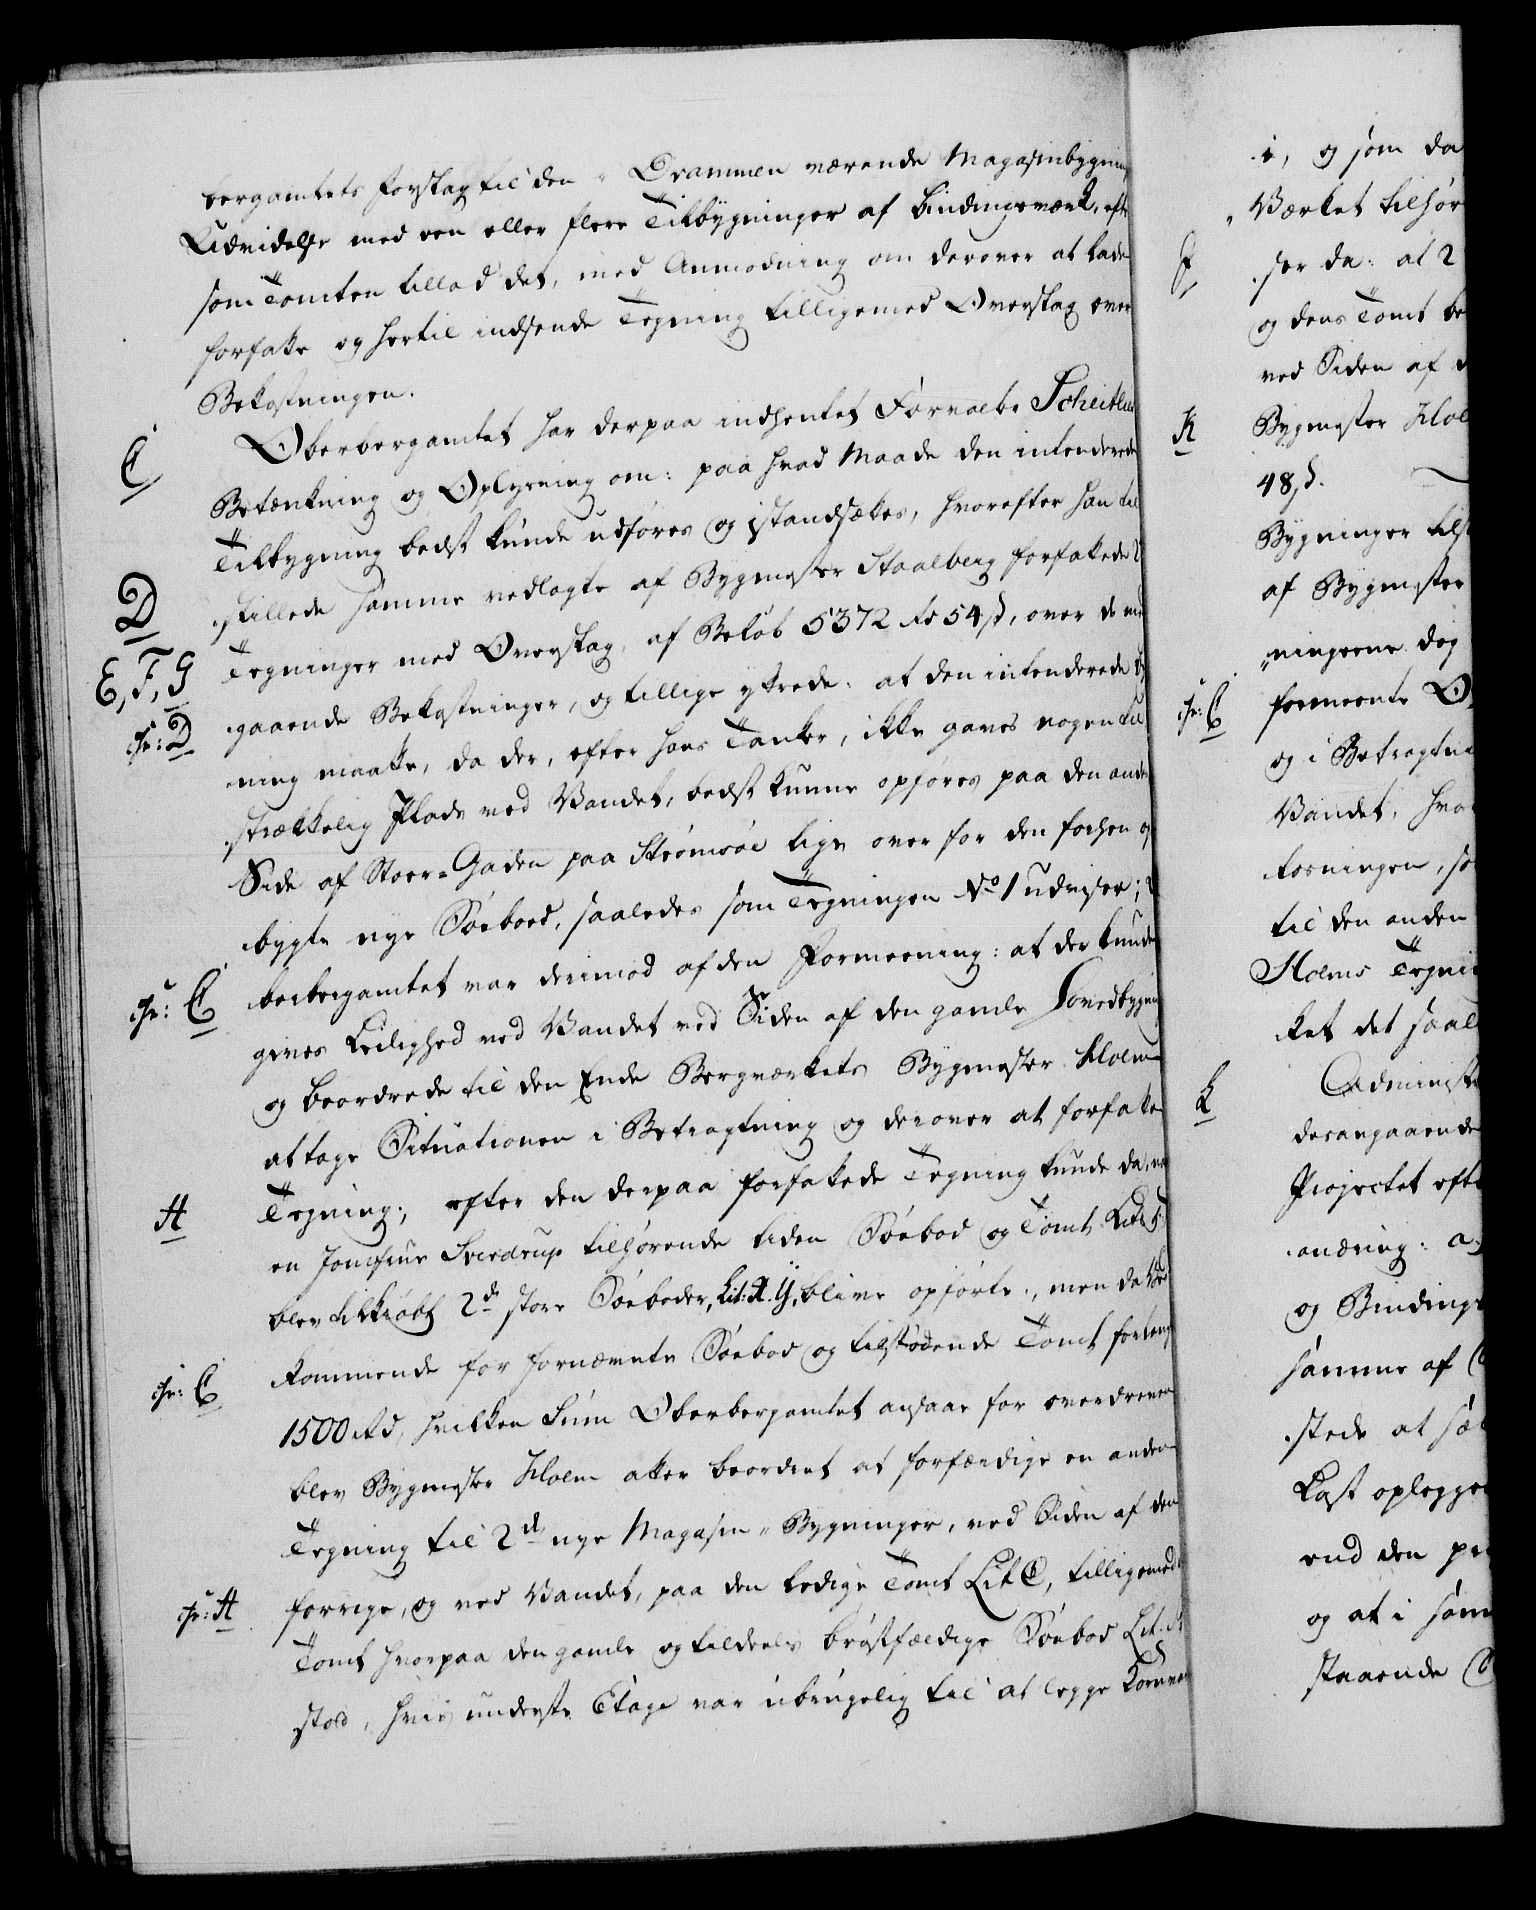 bergamtets Forslag til den i Drammen værende Magasinbygnin
Udvidelse med een eller flere Tilbygninger af Bindingsværk, efte
som Tomten tillod det, med Anmodning om derover at lade
forfatte og hertil indsende Tegning tilligemed Overslag over
Bekostningen.
C Oberbergamtet har derpaa indhentet Forvalter Scheitlies
Betænkning og Oplysning om: paa hvad Maade den intenderede
Tilbygning bedst kunde udføres og istandsættes, hvorefter han til
D stillede samme vedlagte af Bygmester Staalberg forfattede 2
E, F, G Tegninger med Overslag, af Beløb 5372 rd 54 s, over de med
hr: D gaaende Bekostninger, og tillige yttrede: at den intenderede By
ning maatte, da der, efter hans Tanker, ikke gaves nogen til
strækkelig Plads ved Vandet, bedst kunne opføres paa den anden
Side af Stoer-Gaden paa Strømsøe lige over for den forhen op
bygte nye Søebod, saaledes som Tegningen No 1 udviser; O
hr: C berbergamtet var derimod af den Formeening: at der kunde
gives Leilighed ved Vandet ved Siden af den gamle Hovedbygning
og beordrede til den Ende Bergværkets Bygmester Holm
at tage Situationen i Betragtning og derover at forfatte
H Tegning; efter den derpaa forfattede Tegning kunde da, naar
en Jomfrue Sverdrup tilhørende liden Søebod og Tomt Litr
blev tilkiøbt 2de store Søeboder, Lit: X. Y, blive opførte, men da Ved
hr: C kommende for fornævnte Søebod og tilstødende Tomt forlang
1500 rd, hvilken Sum Oberbergamtet ansaae for overdreven
blev Bygmester Holm atter beordret at forfærdige en anden
Tegning til 2de nye Magasin-Bygninger, ved Siden af den
hr: H forrige, og ved Vandet, paa den ledige Tomt Lit C, tilligemed
Tomt hvorpaa den gamle og tildeels brøstfældige Søebod Lit.
stod, hvis underste Etage var ubrugelig til at legge Kornvar
i, og som da
Værket tilhør
for da: at 2
og dens Tomt be
ved Siden af
K Bygmester Hol
48 s.
Bygninger tilst
af Bygmester
ningerne dog
hr: C formeente O
og i Betragtni
Vandet, hvo
kosningen, so
til den anden
Holms Tegni
ket det saal
L Administ
desangaaende
Projectet efte
anæring: a
og Bindings
samme af
stede at sæ
Last oplegge
end den
og at i sam
staaende